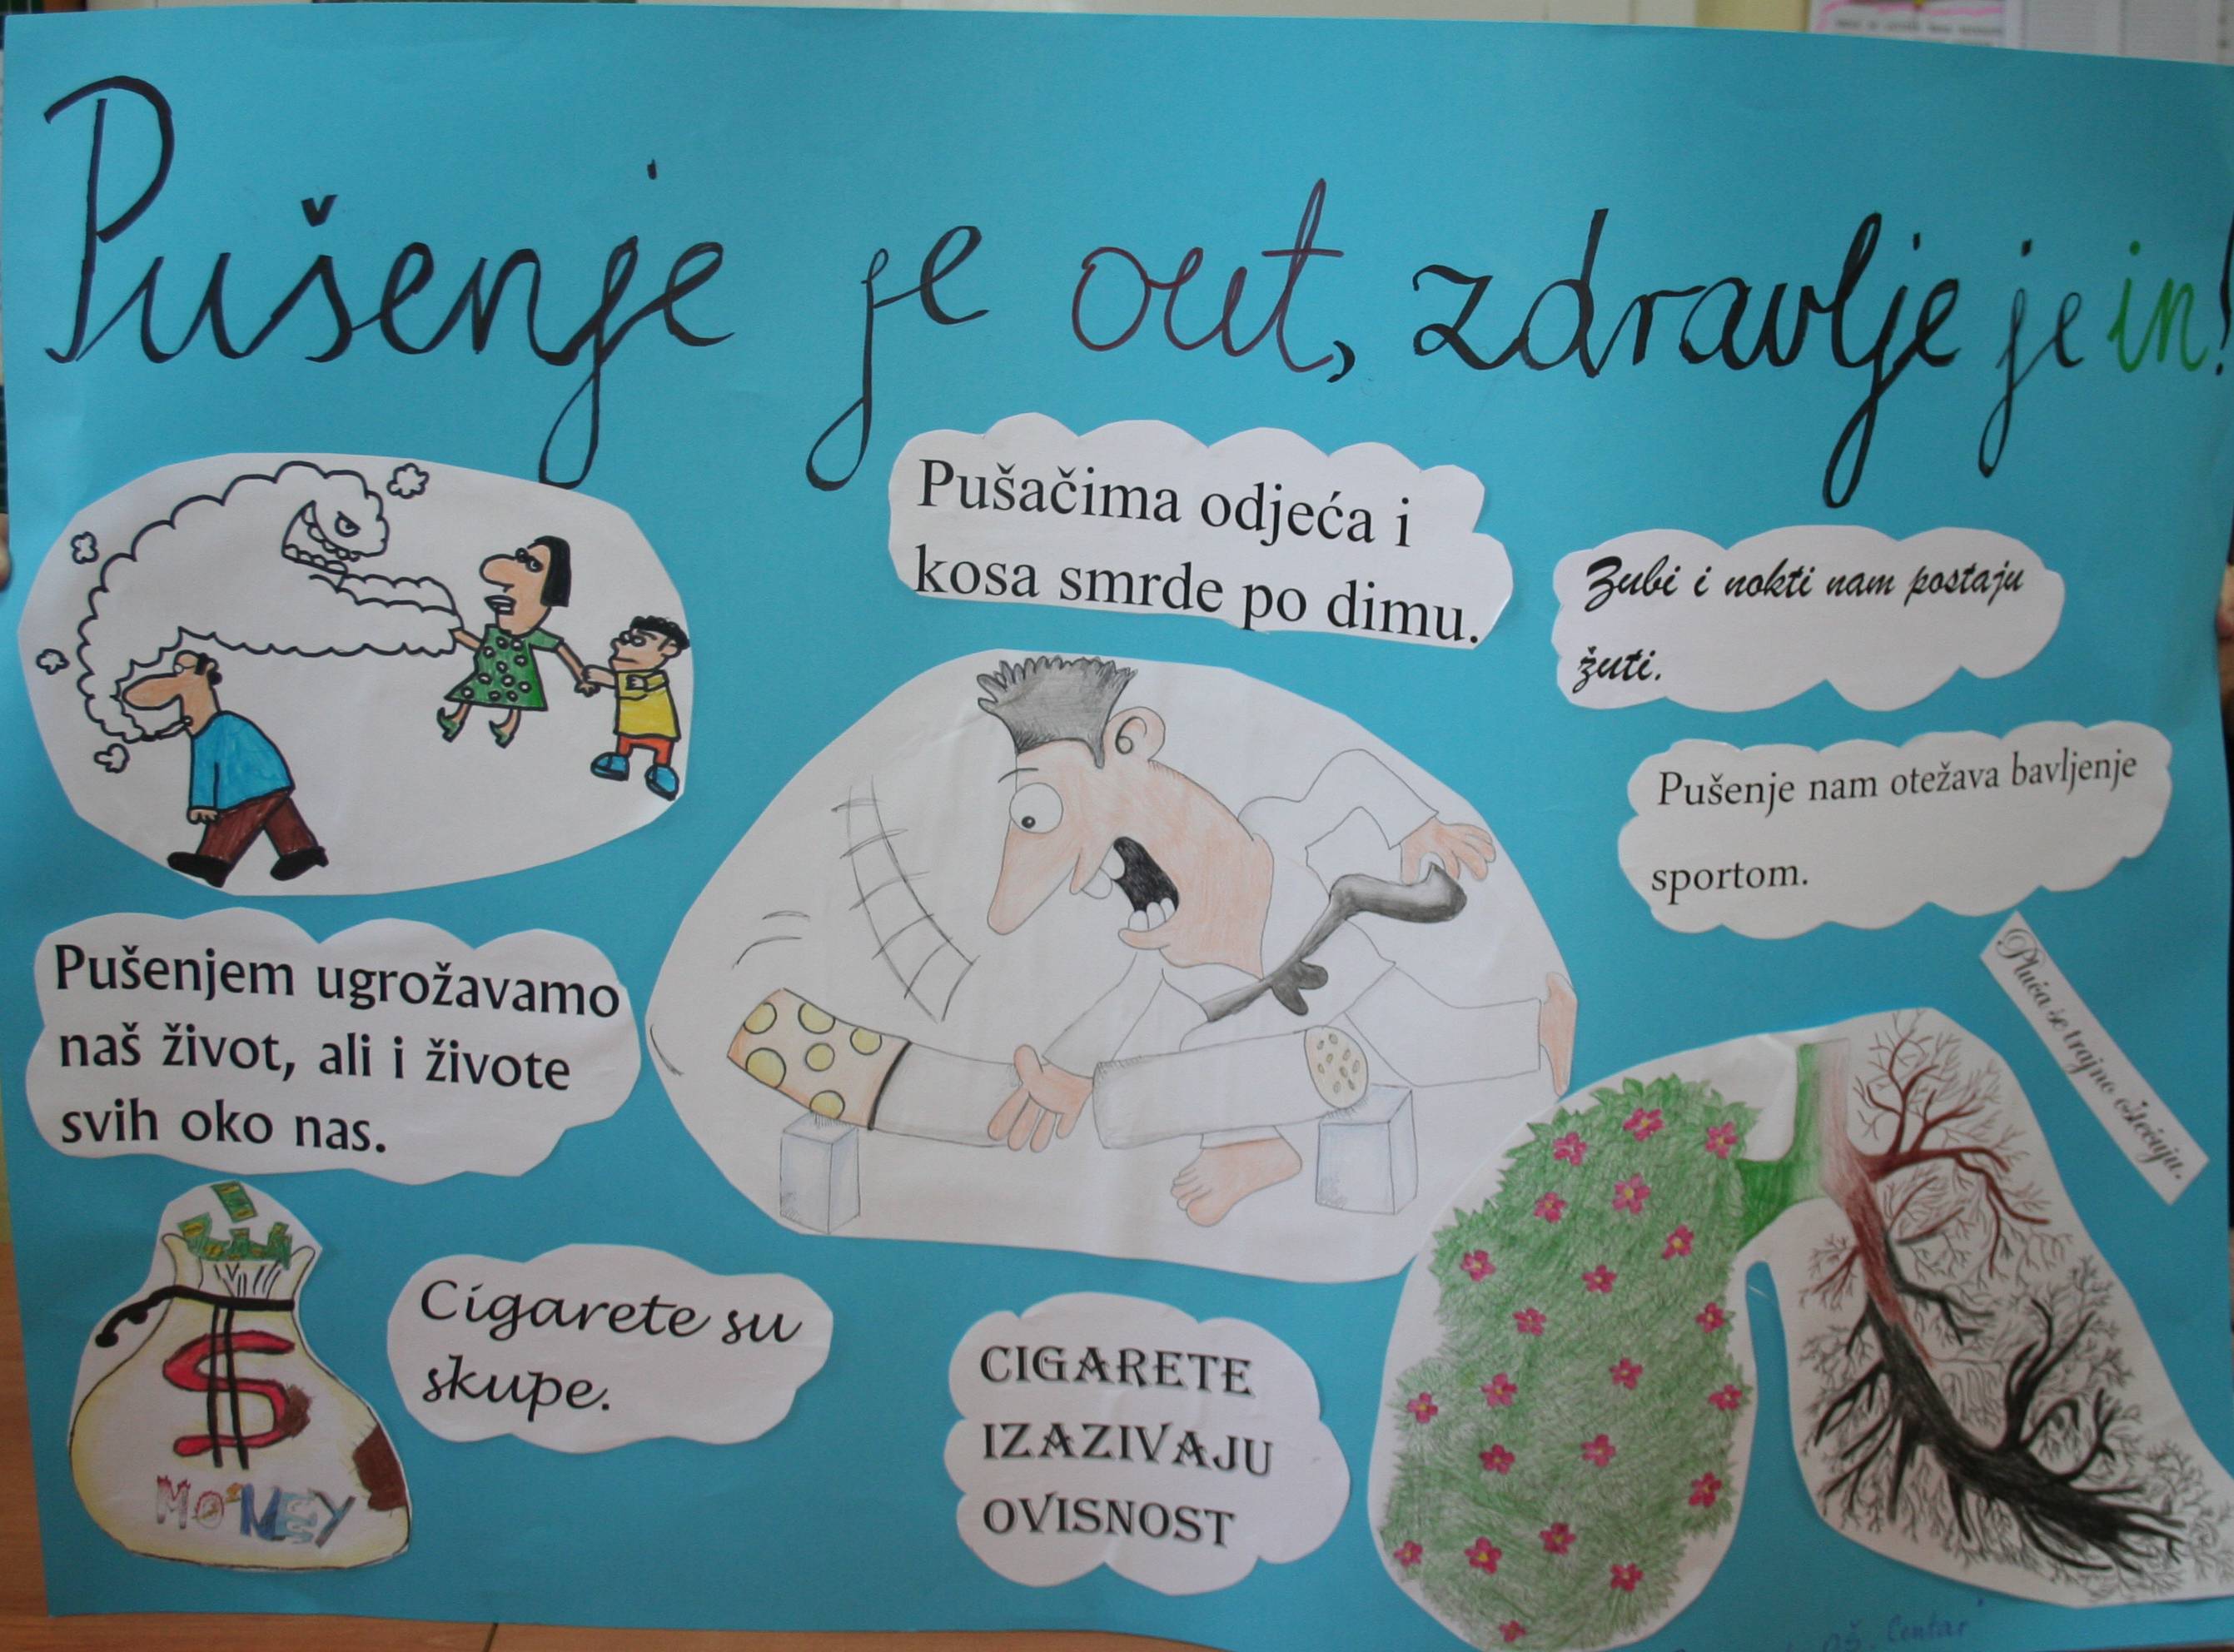 Pušenje je out, zdravlje je in!
Pušačima odjeća i
kosa smrde po dimu.
Zubi i nokti nam postaju
žuti.
Pušenje nam otežava bavljenje
sportom.
Pušenjem ugrožavamo
naš život, ali i živote
svih oko nas.
Pluća se trajno oštećuju.
$
MONEY
Cigarete su
skupe.
CIGARETE
IZAZIVAJU
OVISNOST
OŠ. Centar"